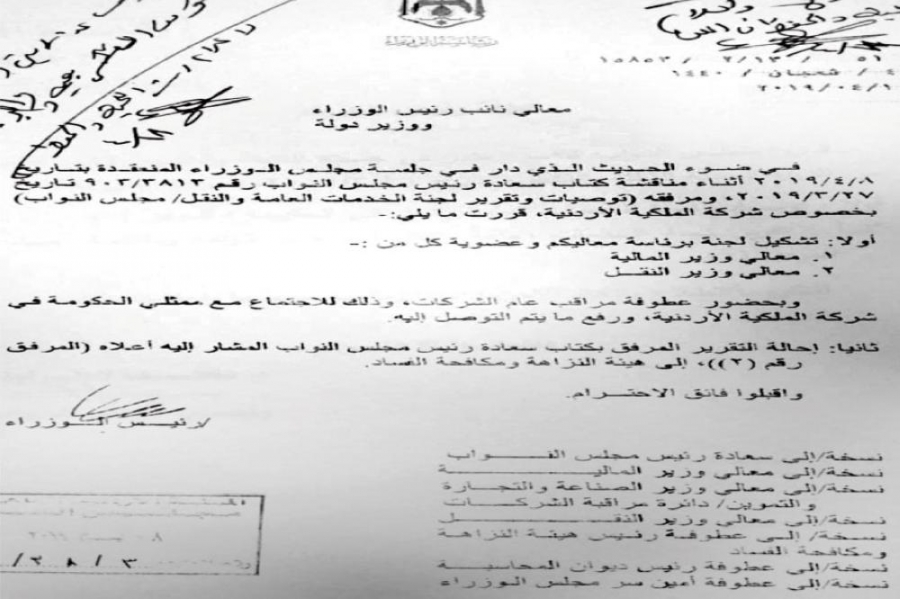 ٥١ / ٢/١٣ / ١٥٨٥٣
شعبان / ١٤٤٠
معالي نائب رئيس الوزراء
ووزير دولة
في ضوء الحديث الذي دار في جلسة مجلس الوزراء المنعقدة بتاريخ
٢٠١٩/٤/٨ أثناء مناقشة كتاب سعادة رئيس مجلس النواب رقم ٩٠٣/٣٨١٣ تاريخ
٢٠١٩/٣/٢٧، ومرفقه (توصيات وتقرير لجنة الخدمات العامة والنقل/ مجلس النواب)
بخصوص شركة الملكية الأردنية، قررت ما يلي:-
أولا: تشكيل لجنة برئاسة معاليكم وعضوية كل من :-
١. معالي وزير المالية
٢. معالي وزير النقل
وبحضور عطوفة مراقب عام الشركات، وذلك للاجتماع مع ممثلي الحكومة في
شركة الملكية الأردنية، ورفع ما يتم التوصل إليه.
ثانيا: إحالة التقرير المرفق بكتاب سعادة رئيس مجلس النواب المشار إليه أعلاه (المرفق
رقم (٢))، إلى هيئة النزاهة ومكافحة الفساد.
واقبلوا فائق الاحترام.
/رئيس الوزراء
نسخة/إلى سعادة رئيس مجلس النواب
نسخة/إلى معالي وزير المالية
نسخة/إلى معالي وزير الصناعة والتجارة
والتموين/ دائرة مراقبة الشركات
نسخة/إلى معالي وزير النقل
نسخة/ إلى عطوفة رئيس هيئة النزاهة
ومكافحة الفساد
نسخة/إلى عطوفة رئيس ديوان المحاسبة
نسخة/إلى عطوفة أمين سر مجلس الوزراء